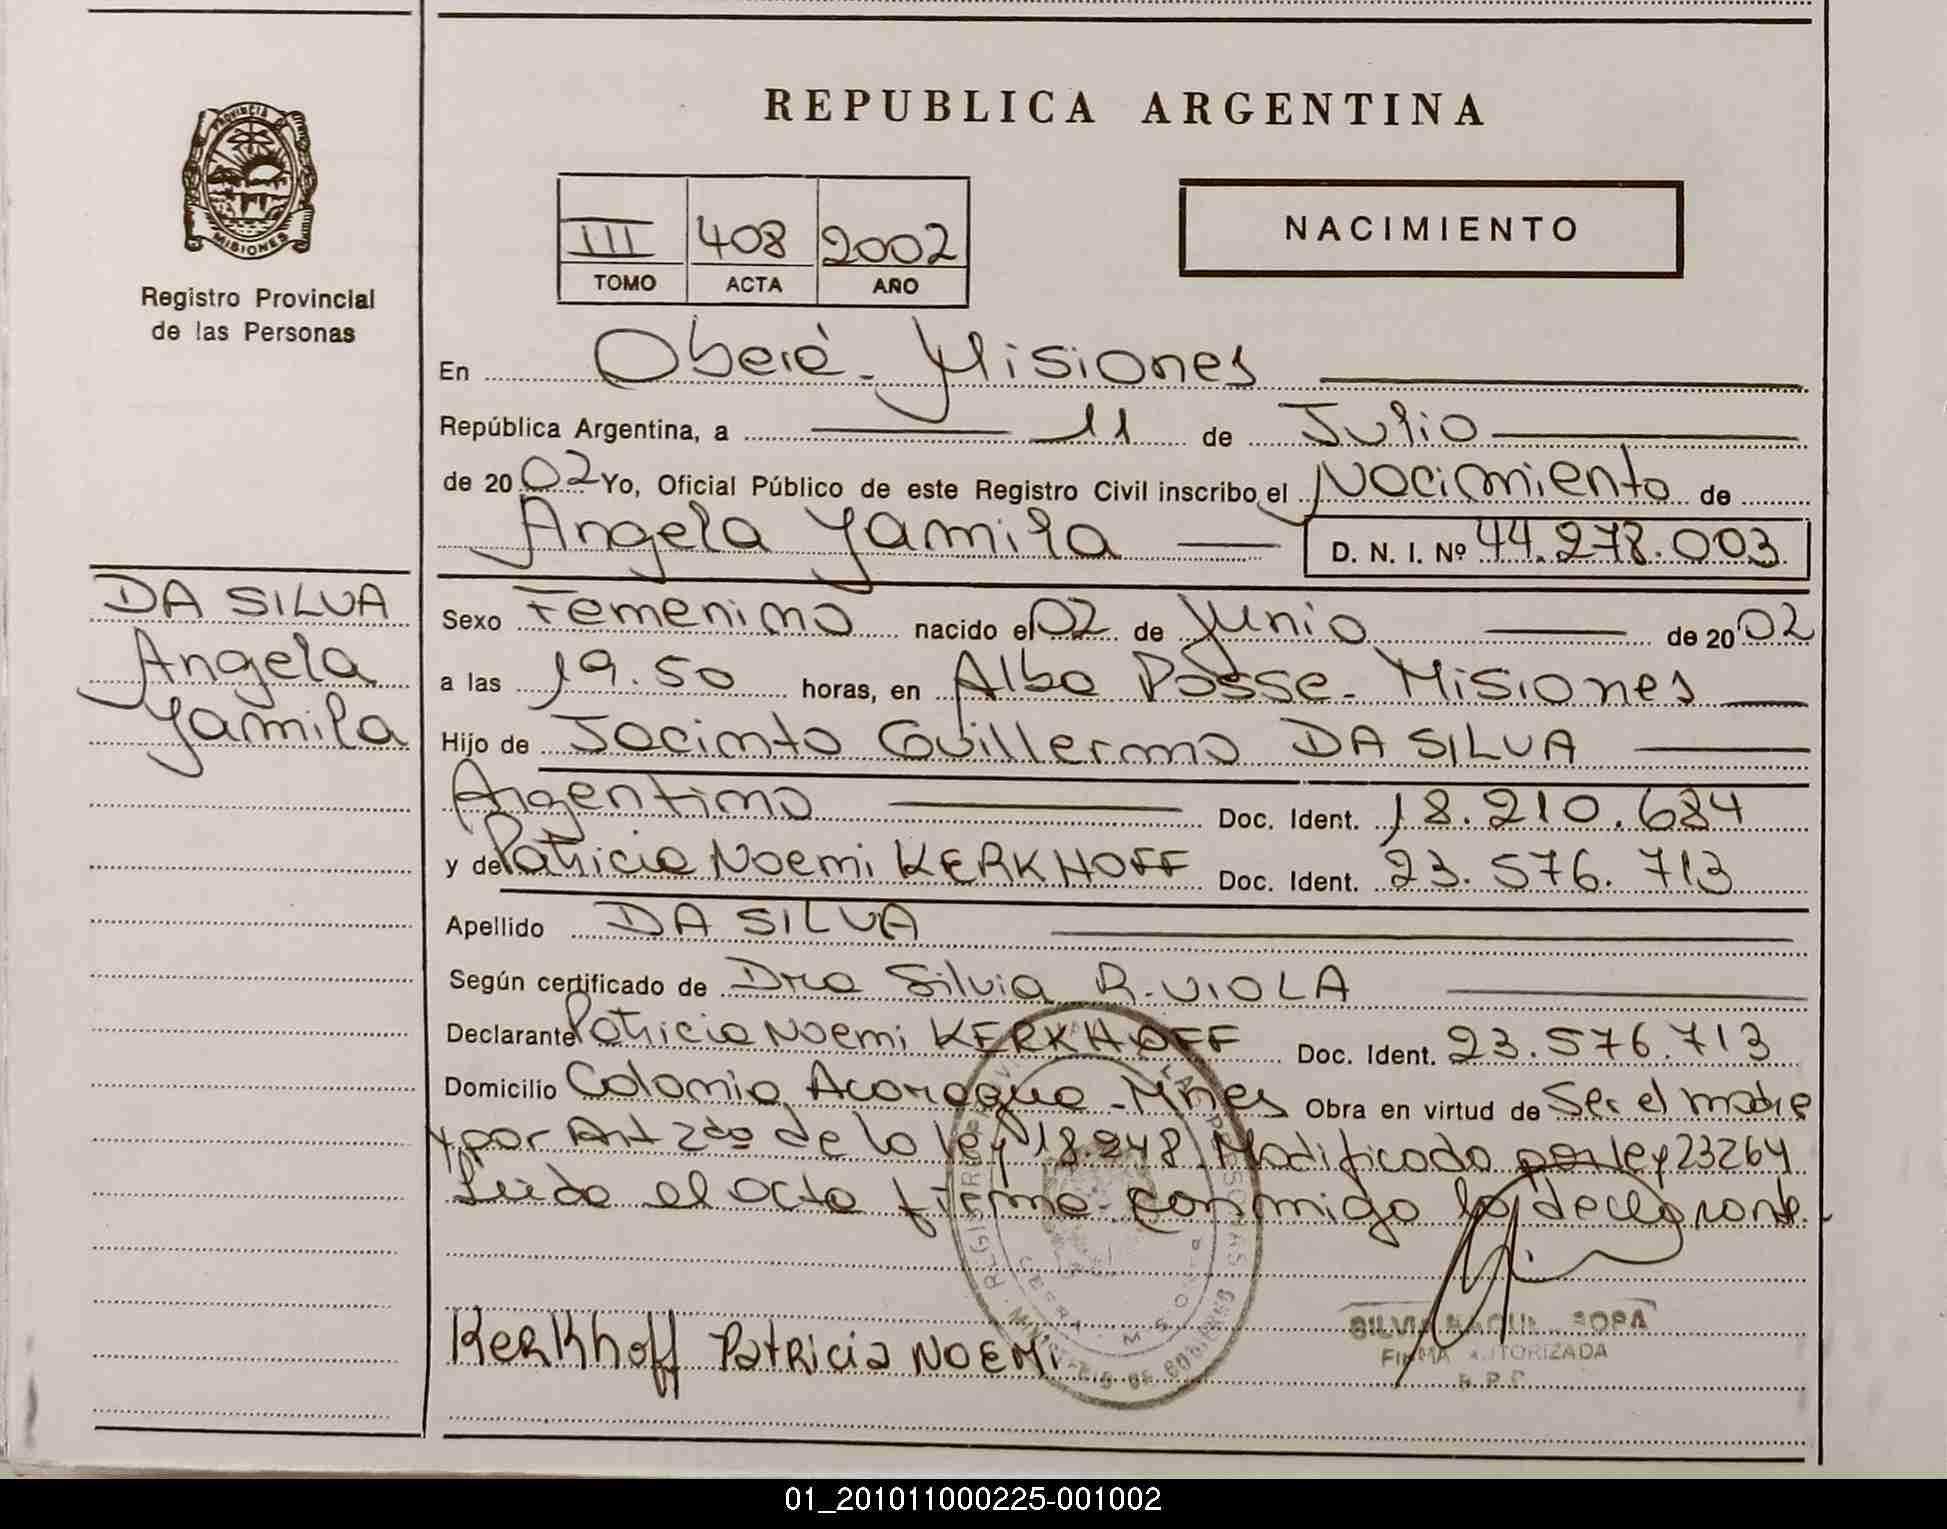 REPUBLICA ARGENTINA
PROVINCIA DE
MISIONES
Registro Provincial
de las Personas
III 408 2002
TOMO ACTA AÑO
NACIMIENTO
En Oberá - Misiones
República Argentina, a 11 de Julio
de 2002 Yo, Oficial Público de este Registro Civil inscribo el Nacimiento de
Angela Yamila D. N. I. Nº 44.278.003
DA SILVA
Angela
Yamila
Sexo Femenino nacido el 02 de Junio de 2002
a las 19.50 horas, en Alba Posse - Misiones
Hijo de Jacinto Guillermo DA SILVA
Argentino Doc. Ident. 18.210.684
y de Patricia Noemi KERKHOFF Doc. Ident. 23.576.713
Apellido DA SILVA
Según certificado de Dra Silvia R. VIOLA
Declarante Patricia Noemi KERKHOFF Doc. Ident. 23.576.713
Domicilio Colonia Acaragua - Mnes Obra en virtud de Ser el madre
y por Art 2do de la ley 18.248 Modificada por ley 23264
Leida el acta firma conmigo la declarante.
Kerkhoff Patricia NOEMI
SILVIA
FIRMA AUTORIZADA
01_201011000225-001002